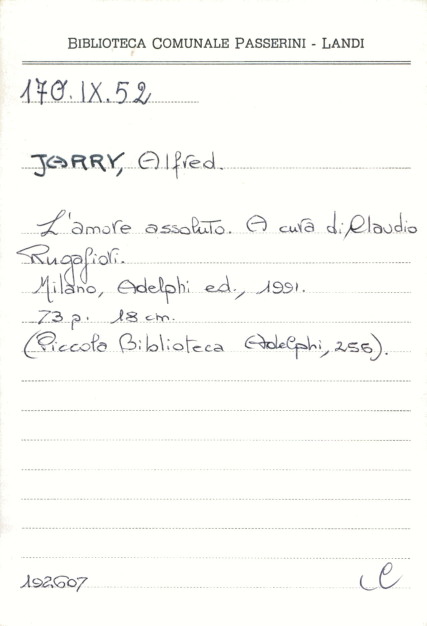 BIBLIOTECA COMUNALE PASSERINI - LANDI
170.IX.52
JARRY, Alfred.
L'amore assoluto. A cura di Claudio
Rugafiori.
Milano, Adelphi ed., 1991.
73 p. 18 cm.
(Piccola Biblioteca Adelphi, 256).
192607